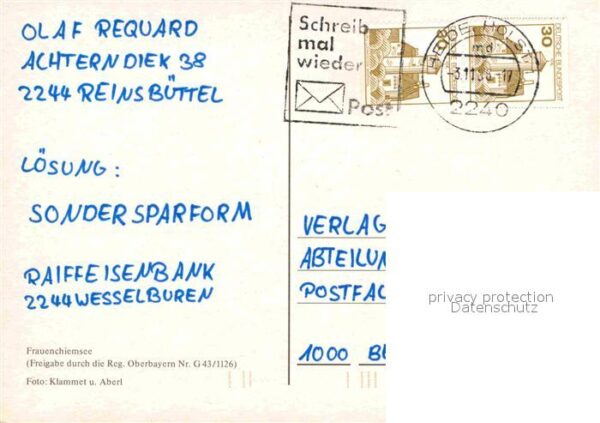 OLAF REQUARD
ACHTERN DIEK 38
2244 REINSBÜTTEL
LÖSUNG:
SONDERSPARFORM
RAIFFEISENBANK
2244 WESSELBUREN
Frauenchiemsee
(Freigabe durch die Reg. Oberbayern Nr. G 43/1126)
Foto: Klammet u. Aberl
Schreib
mal
wieder
Post
HEIDE, HOLST
md
2240
30
DEUTSCHE BUNDESPOST
VERLAG
ABTEILUN
POSTFAC
1000 BE
privacy protection
Datenschutz